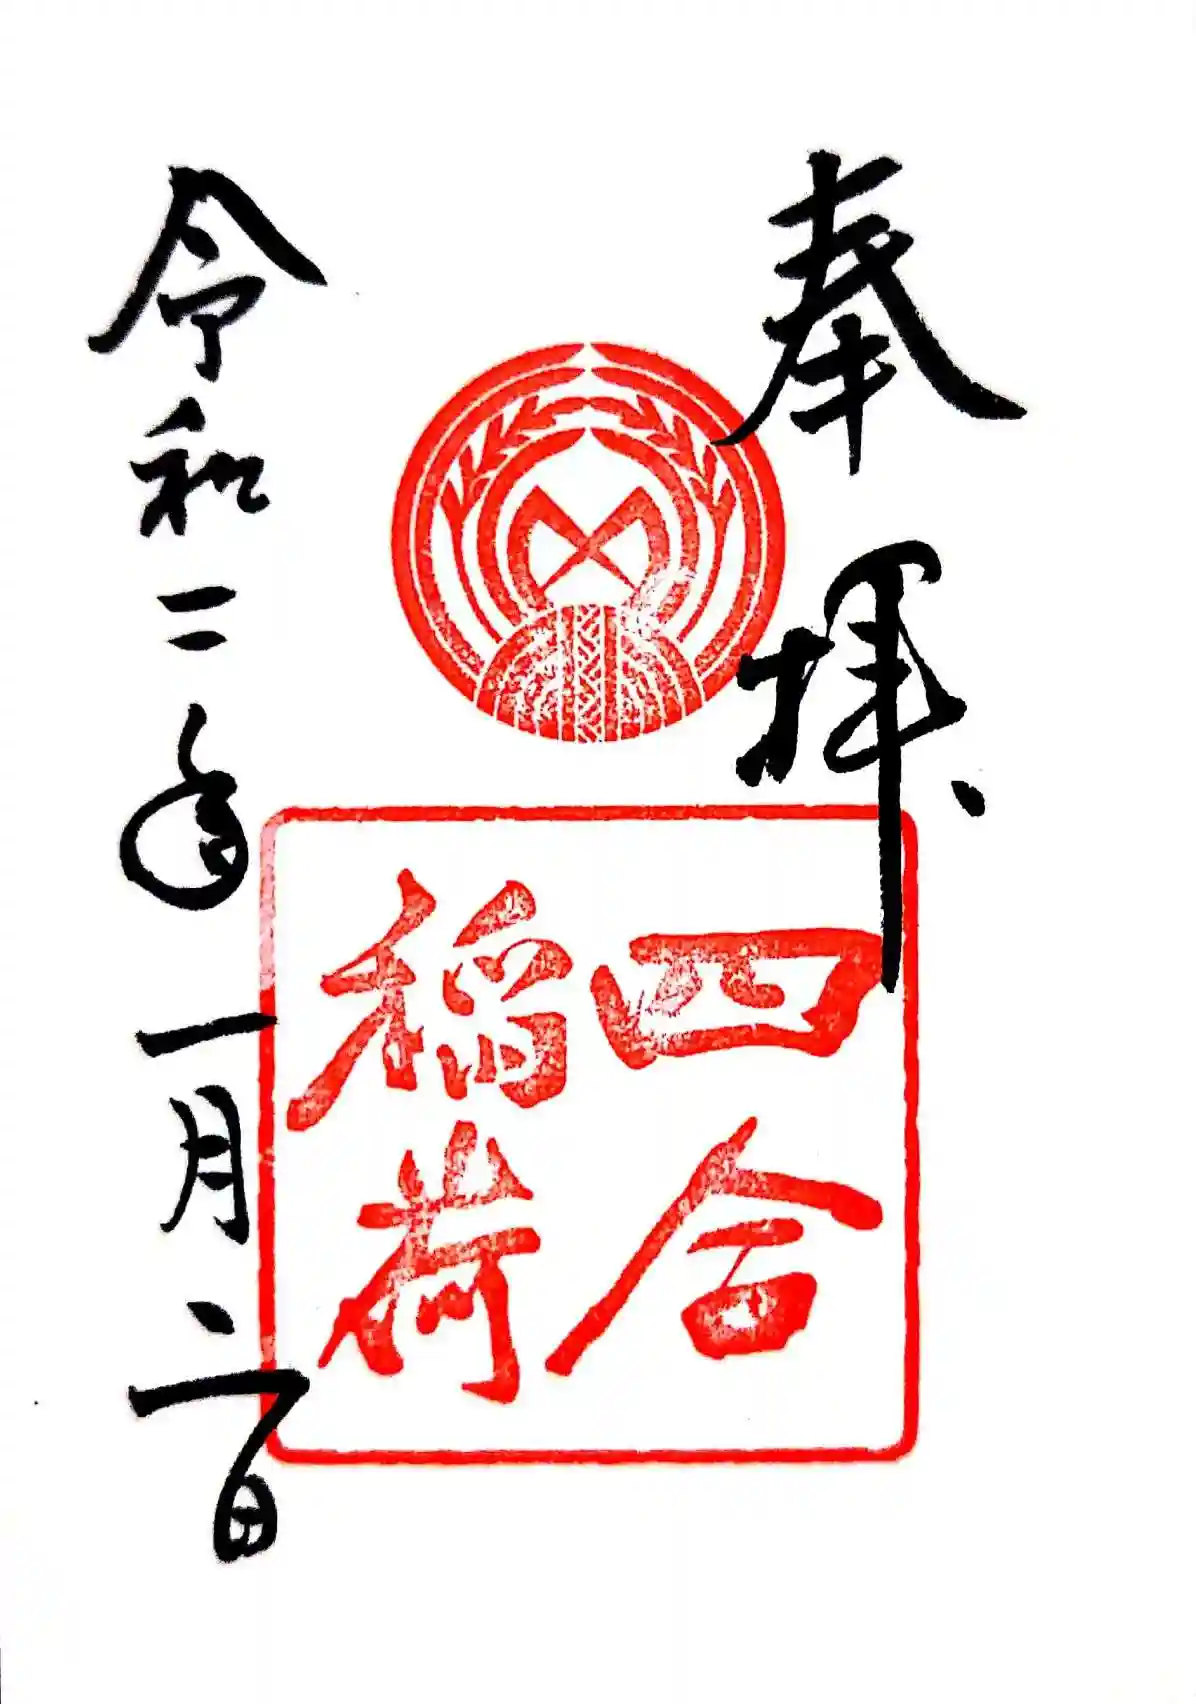 奉拝
四合
稲荷
令和二年一月二日